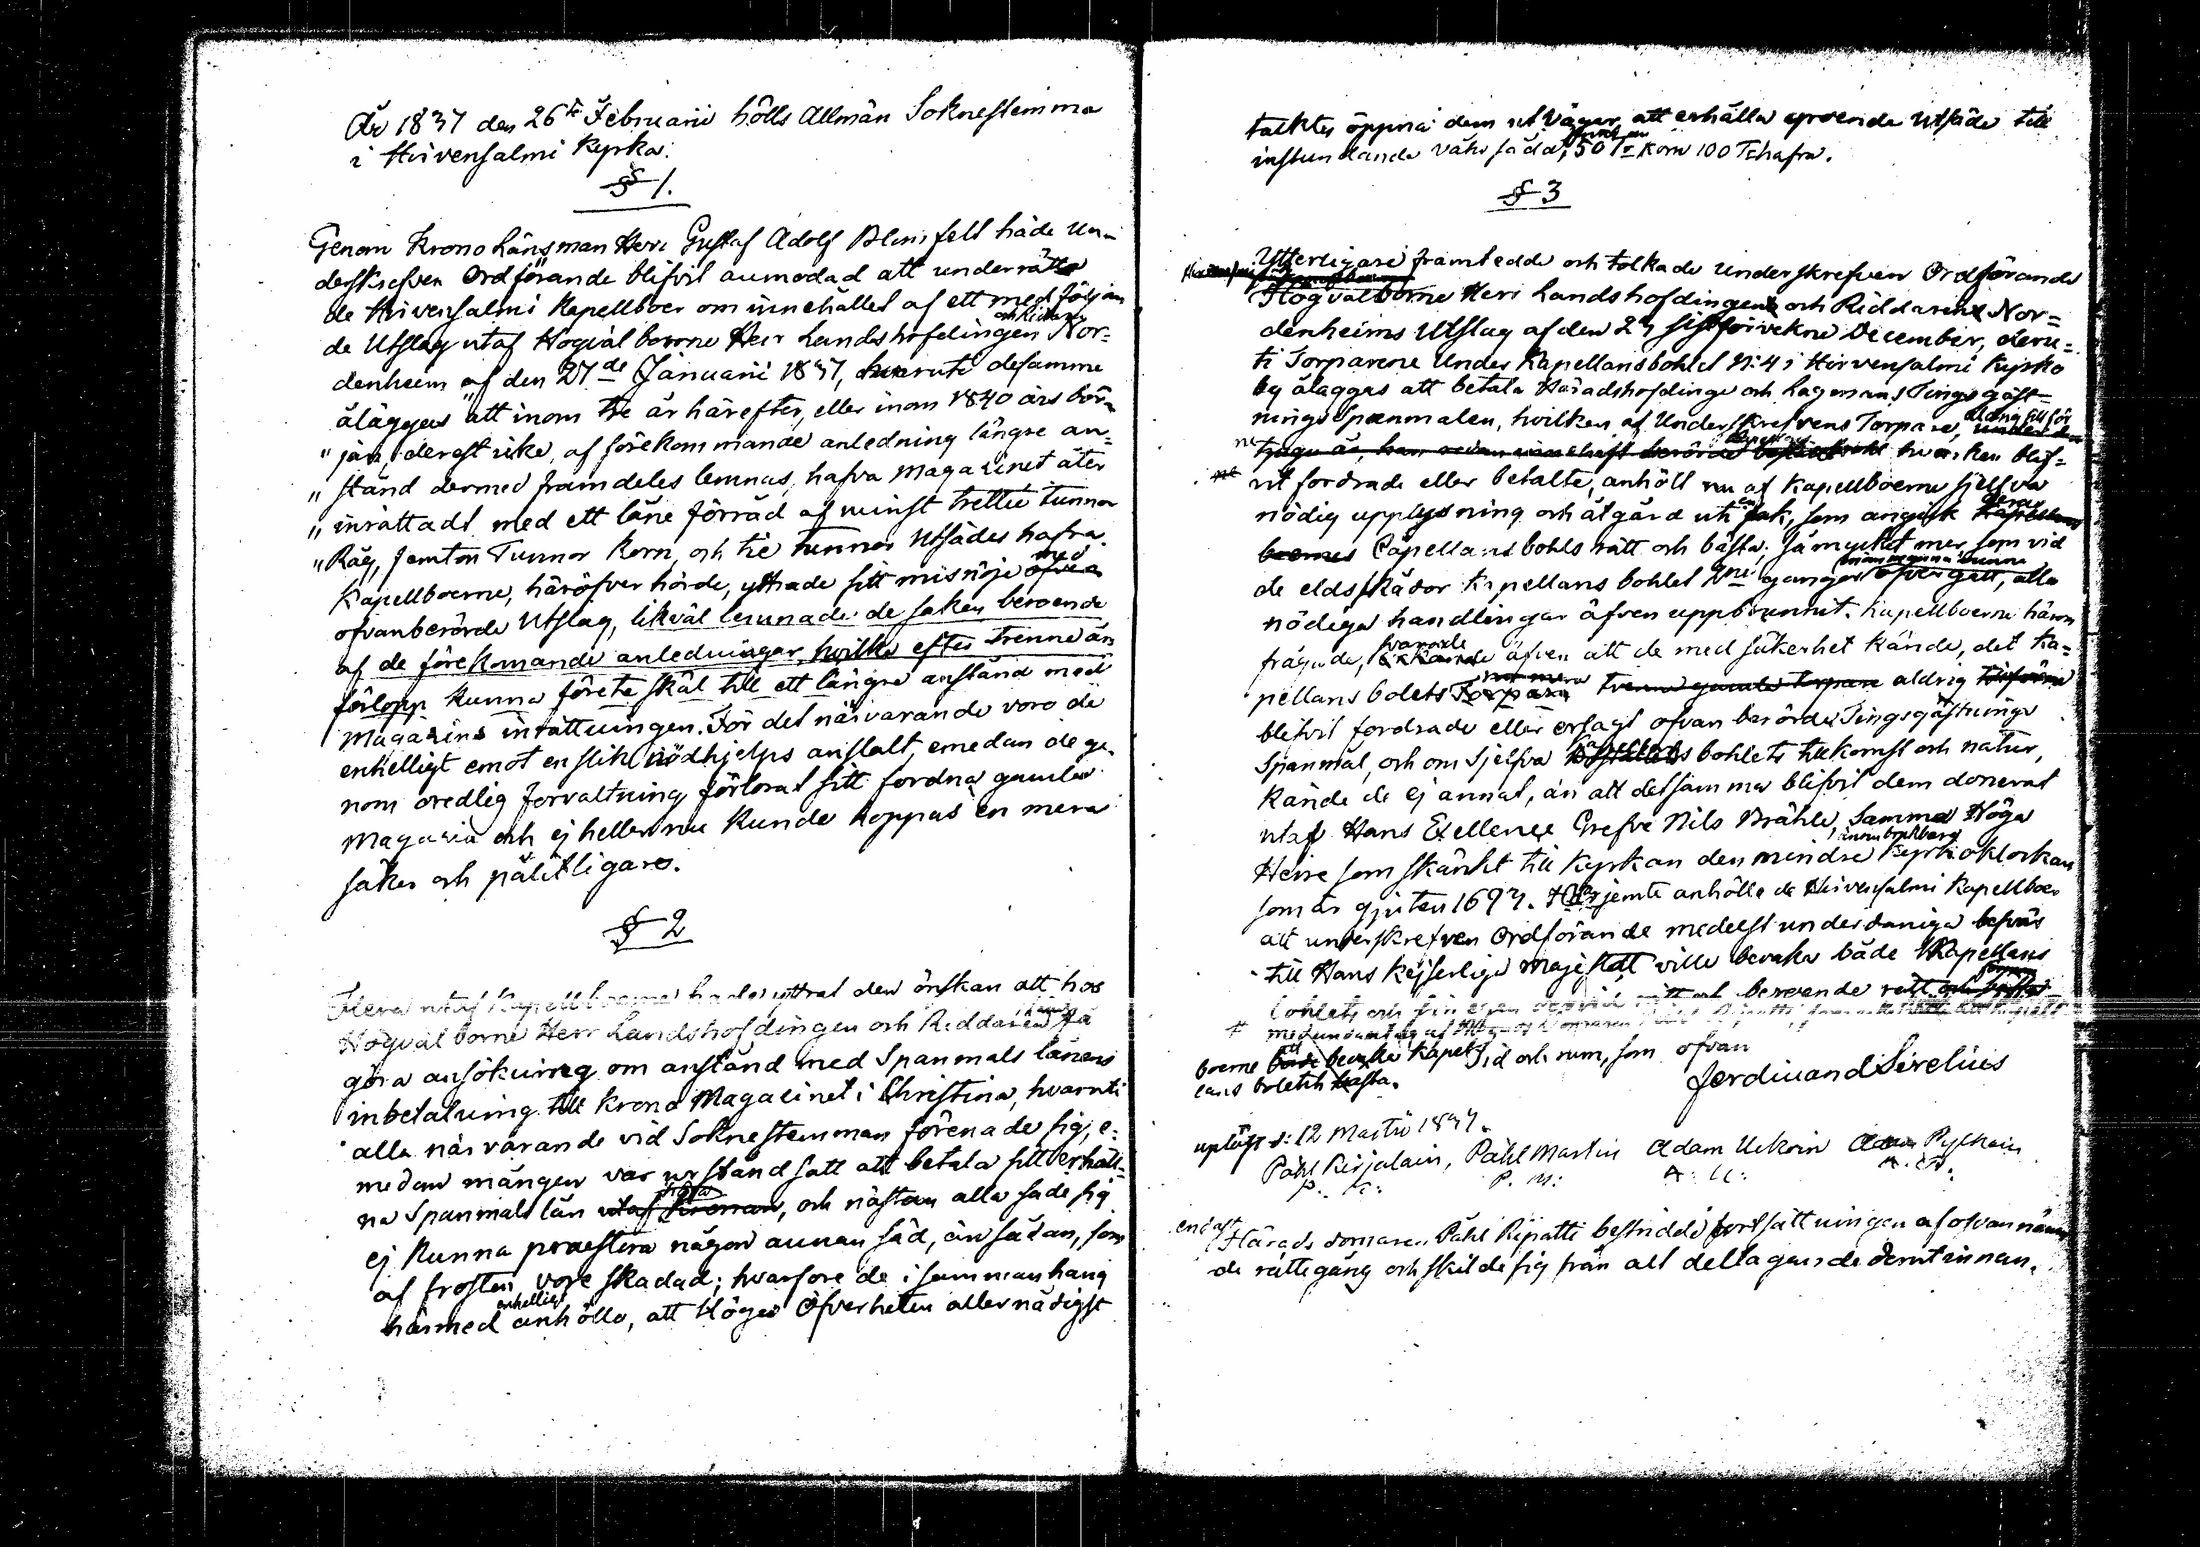 År 1837 den 26te Februarii hölls Allmän Soknestemma
i Hirvensalmi Kyrka.
§ 1.
Genom Krono Länsman Herr Gustaf Adolf Blomfelt hade un-
derskrefven Ordförande blifvit anmodad att underrätta
de Hirvensalmi Kapellboer om innehållet af ett medföljan
de Utslag utaf Högvälborne Herr Landshöfdingen Nor-
denheim af den 27de Januarii 1837, hvaruti desamme
åläggas "att inom tre år härefter, eller inom 1840 års bör-
"jan, derest icke, af förekommande anledning längre an-
"stånd dermed framdeles lemnas, hafva Magazinet åter
"inrättadt med ett låne förråd af minst trettio tunnor
"Råg, femton Tunnor Korn, och tie tunnor Utsädes hafra.
Kapellboerne, häröfver hörde, yttrade sitt misnöje med
ofvanberörde Utslag, likväl lemnade de saken beroende
af de förekomande anledningar, hvilka efter Trenne års
förlopp kunna förete skäl till ett längre anstånd med
Magazins inrättningen. För det närvarande voro de
enhelligt emot en slik nödhjelps anstalt, emedan de ge-
nom oredlig förvaltning förlorat sitt fordna gamla
Magazin och ej heller nu kunde hoppas en mera
säker och pålitligare.
§ 2
Flera utaf Kapellboerne hade yttrat den önskan att hos
Högvälborne Herr Landshöfdingen och Riddaren få
göra ansökning om anstånd med Spanmåls lånens
inbetalning till Krono Magazinet i Christina, hvaruti
alla närvarande vid Soknestemman förenade sig, e-
medan mången var ur stånd satt att betala sitt erhåll-
na Spanmåls lån, och nästan alla sade sig
ej kunna praestera någon annan säd, än sådan, som
af frosten vore skadad; hvarfore de i sammanhang
härmed enhelligt anhöllo, att Höga Öfverheten allernådigst
täcktes öppna dem utvägar att erhålla groende Utsäde till
instundande vår säda, 50 Tr korn 100 Tr hafra.
§ 3
Ytterligare framtedde och tolkade underskrefven Ordförande
Högvälborne Herr Landshofdingens och Riddarens Nor-
denheims Utslag af den 27 sistförvekne December, deru-
ti Torparene Under Kapellansbohlet N:4 i Hirvensalmi Kyrko
by åläggas att betala Häradshöfdinge och Lagmans Tings gäst-
nings Spanmålen, hvilken af Underskrefvens Torpare, aldrig till för
ne hvarken blif-
vit fordrade eller betalte, anhöll nu af Kapellboerne sjelfva
nödig upplysning och åtgärd uti en sak, som angick deras
Capellans bohls rätt och bästa; så mycket mer som vid
de eldskådor Kapellans bohlet 2ne gånger öfvergått, alla
nödiga handlingar äfven uppbrunnit. Kapellboerne härom
frågade, svarade äfven att de med säkerhet kände, det Ka-
pellans bolets Torpare aldrig
blifvit fordrade eller ersagt ofvan berörde Tingsgästnings
Spanmål, och om sjelfva Kapellans bohlets tillkomst och natur,
kände de ej annat, än att detsamma blifvit dem donerat
utaf Hans Exellence Grefve Nils Brahe, Samma Höga
Herre som skänkt till Kyrkan den mindre Kyrkoklockan
som är gjuten 1693. Härjemte anhölla de Hirvensalmi Kapellboer
att underskrefven Ordförande medelst underdåniga besvär
till Hans Kejserliga Majestät ville bevaka både Kapellans
bohlets och sin egen beroende rätt
med undantag af
boerne bevaka Kapel-
lans boletets bästa.
Tid och rum, som ofvan
Ferdinand Sirelius
upläst d: 12 Martii 1837.
Påhl Kirjalain, Påhl Martin Adam Uckoin Adam Pylkäin
P. K: P. M: A: U: A. P.
endast Härads domaren Påhl Ripatti bestridde fortsättningen af ofvannämn
de rättegång och skilde sig från alt deltagande derutinnan.